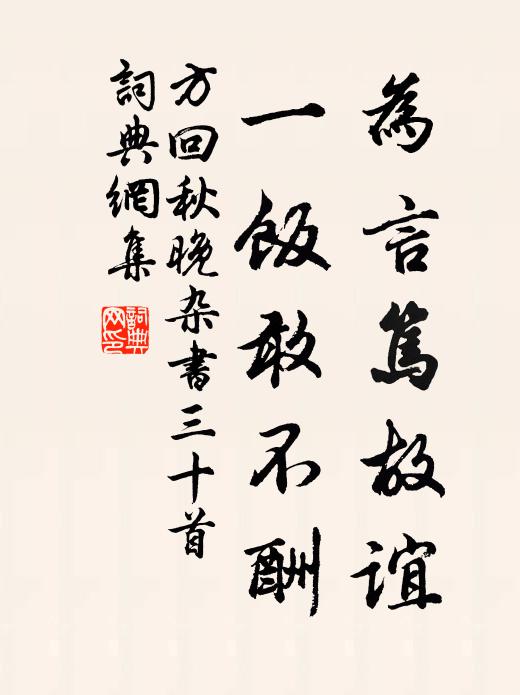 為言篤故誼
一飯敢不酬
方回秋晚杂書三十首
詞典網集
詞典網印